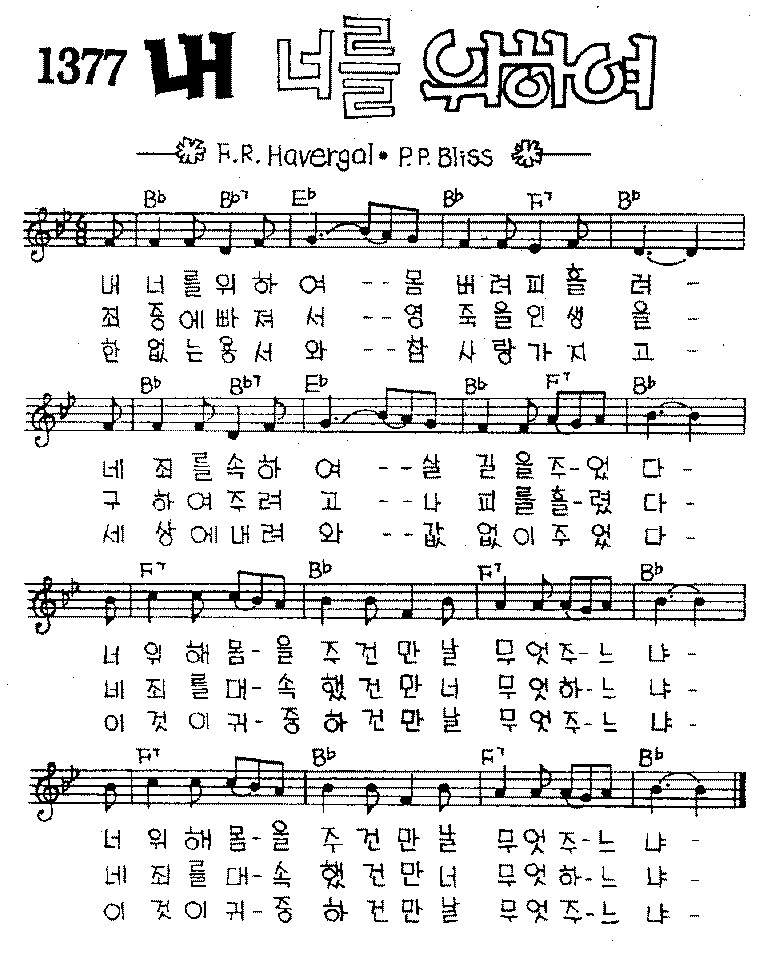 1377 내 너를 위하여
F.R. Havergal • P.P. Bliss
Bb Bb7 Eb Bb F7 Bb
내 너 를 위 하 여 - - 몸 버 려 피 흘 려 -
죄 중 에 빠 져 서 - - 영 죽 을 인 생 을 -
한 없 는 용 서 와 - - 참 사 랑 가 지 고 -
Bb Bb7 Eb Bb F7 Bb
네 죄 를 속 하 여 - - 살 길 을 주 - 었 다 -
구 하 여 주 려 고 - - 나 피 를 흘 - 렸 다 -
세 상 에 내 려 와 - - 값 없 이 주 었 다 -
F7 Bb F7 Bb
너 위 해 몸 - 을 주 건 만 날 무 엇 주 - 느 냐 -
네 죄 를 대 - 속 했 건 만 너 무 엇 하 - 느 냐 -
이 것 이 귀 - 중 하 건 만 날 무 엇 주 - 느 냐 -
F7 Bb F7 Bb
너 위 해 몸 - 을 주 건 만 날 무 엇 주 - 느 냐 -
네 죄 를 대 - 속 했 건 만 너 무 엇 하 - 느 냐 -
이 것 이 귀 - 중 하 건 만 날 무 엇 주 - 느 냐 -